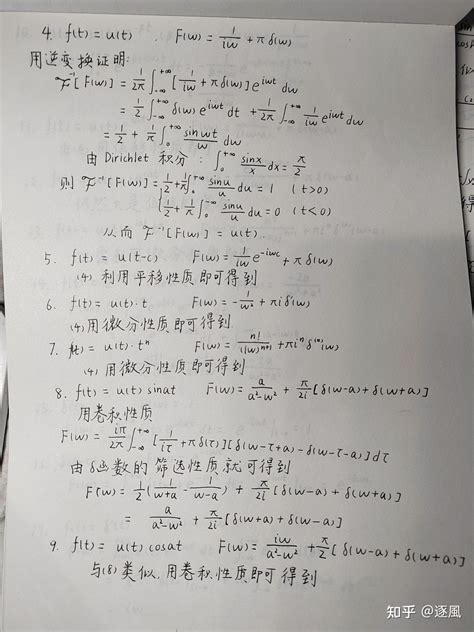 4. f(t) = u(t) . F(w) = \frac{1}{iw} + πδ(w)
用逆变换证明:
ℱ^{-1}[F(w)] = \frac{1}{2π}∫_{-∞}^{+∞} [\frac{1}{iw} + πδ(w)] e^{iwt} dw
= \frac{1}{2}∫_{-∞}^{+∞} δ(w) e^{iwt} dt + \frac{1}{2π}∫_{-∞}^{+∞} \frac{1}{iw} e^{iwt} dw
= \frac{1}{2} + \frac{1}{π}∫_{0}^{+∞} \frac{sinwt}{w} dw
由 Dirichlet 积分 : ∫_{0}^{+∞} \frac{sinx}{x} dx = \frac{π}{2}
则 ℱ^{-1}[F(w)] = \frac{1}{2} + \frac{1}{π}∫_{0}^{+∞} \frac{sinu}{u} du = 1 (t>0)
\frac{1}{2} + \frac{1}{π}∫_{0}^{-∞} \frac{sinu}{u} du = 0 (t<0)
从而 ℱ^{-1}[F(w)] = u(t).
5. f(t) = u(t-c) F(w) = \frac{1}{iw} e^{-iwc} + πδ(w)
(4) 利用平移性质即可得到
6. f(t) = u(t)·t F(w) = -\frac{1}{w²} + πiδ'(w)
(4) 用微分性质即可得到
7. f(t) = u(t)·t^n F(w) = \frac{n!}{(iw)^{n+1}} + πi^n δ^{(n)}(w)
(4) 用微分性质即可得到
8. f(t) = u(t) sinat F(w) = \frac{a}{a²-w²} + \frac{π}{2i}[δ(w-a) + δ(w+a)]
用卷积性质
F(w) = \frac{iπ}{2π}∫_{-∞}^{+∞} [\frac{1}{iτ} + πδ(τ)][δ(w-τ+a) - δ(w-τ-a)] dτ
由 δ函数的筛选性质就可得到
F(w) = \frac{1}{2}(\frac{1}{w+a} - \frac{1}{w-a}) + \frac{π}{2i}[δ(w-a) + δ(w+a)]
= \frac{a}{a²-w²} + \frac{π}{2i}[δ(w+a) + δ(w-a)]
9. f(t) = u(t) cosat F(w) = \frac{iw}{a²-w²} + \frac{π}{2}[δ(w-a) + δ(w+a)]
与(8) 类似, 用卷积性质即可得到
知乎 @逐風